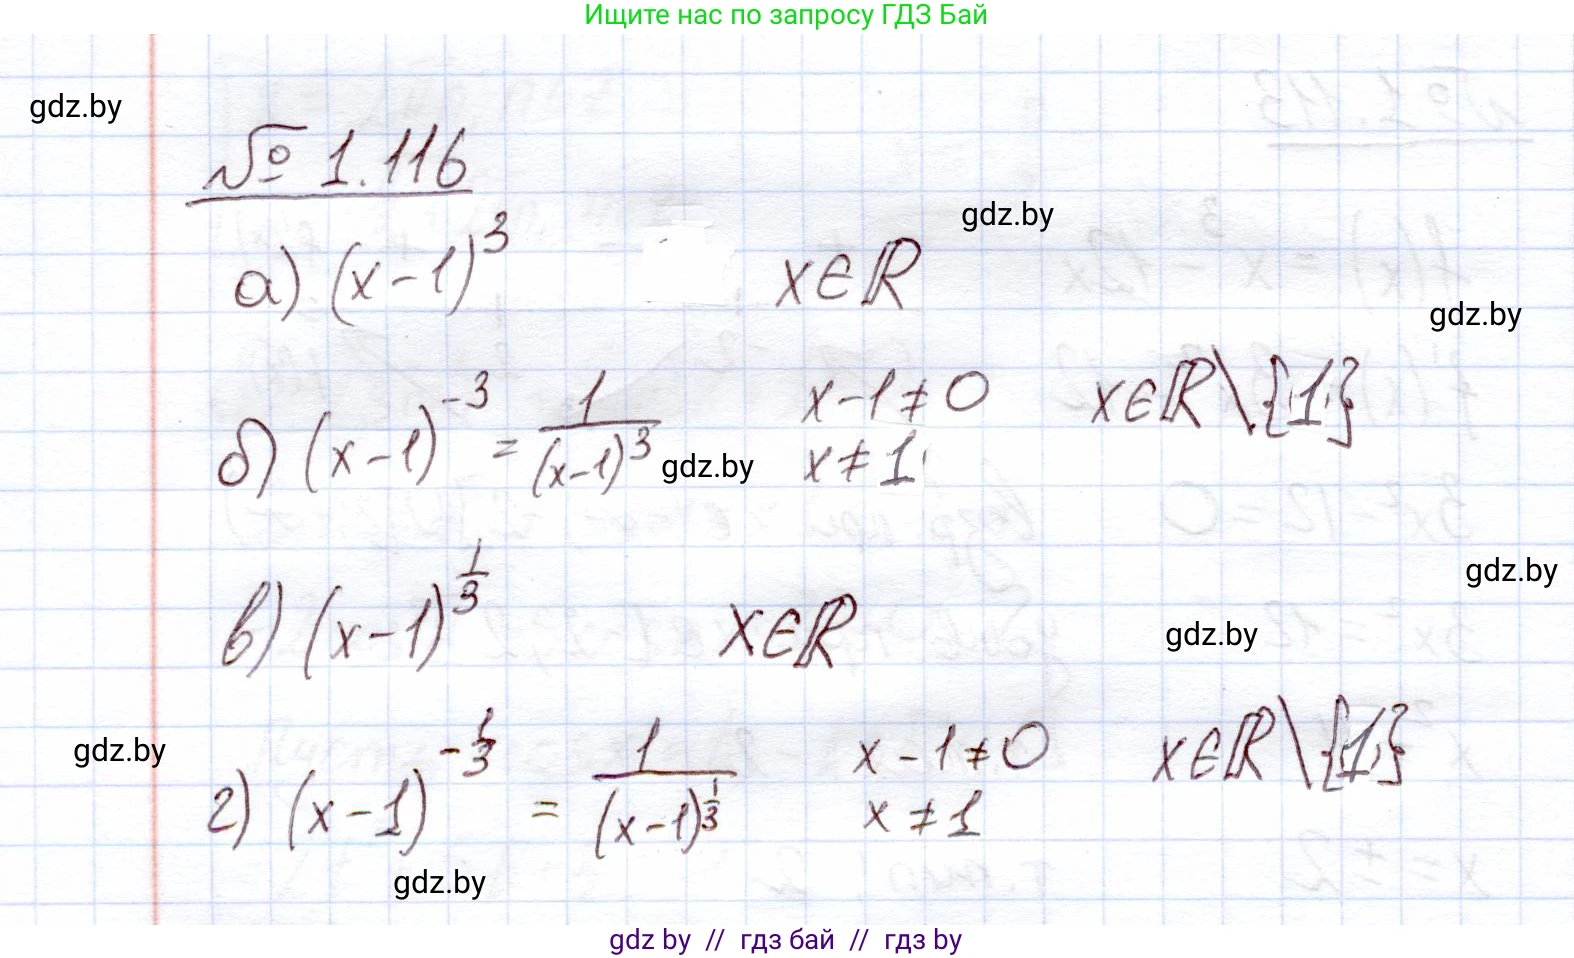 Ищите нас по запросу ГДЗ Бай
gdz.by
№ 1.116
gdz.by
а) (x-1)^3 x∈ℝ
gdz.by
б) (x-1)^{-3} = 1/(x-1)^3 x-1≠0 x∈ℝ\{1}
gdz.by x≠1
gdz.by
в) (x-1)^{1/3} x∈ℝ
gdz.by
gdz.by
г) (x-1)^{-1/3} = 1/(x-1)^{1/3} x-1≠0 x∈ℝ\{1}
x≠1
gdz.by
gdz by // гдз бай // гдз by